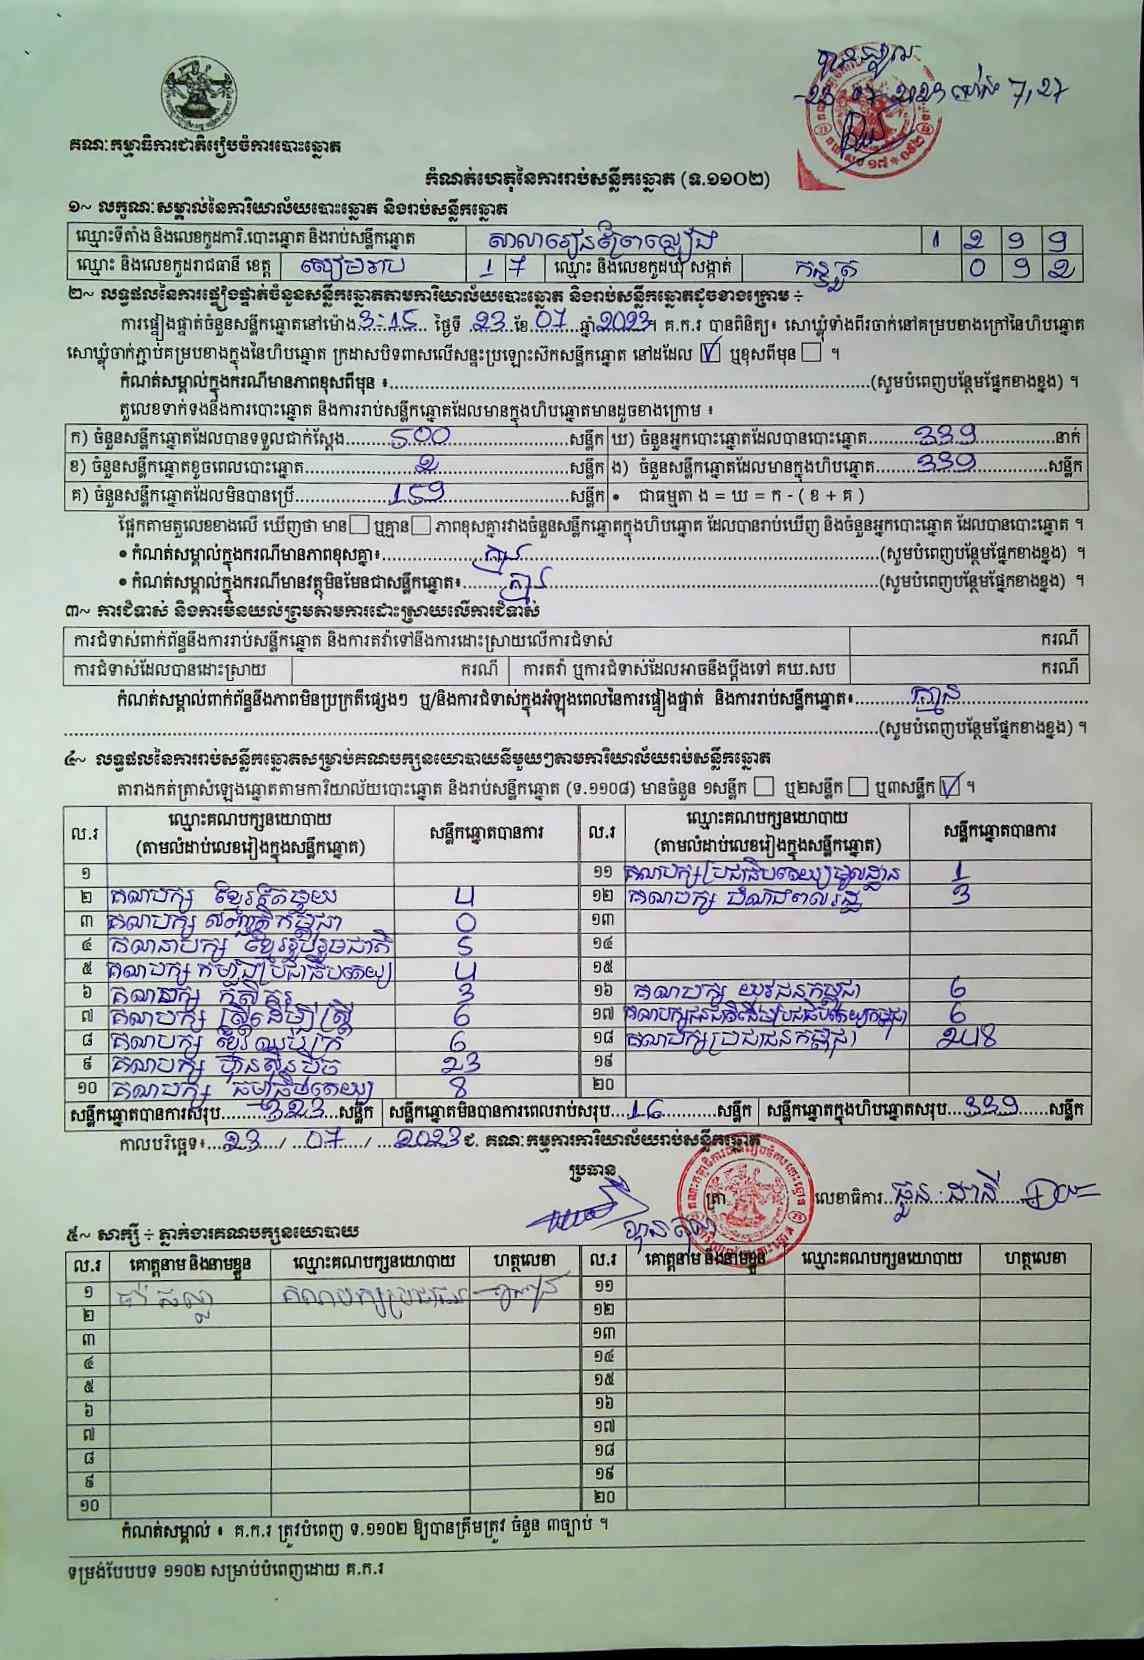 គណៈកម្មាធិការជាតិរៀបចំការបោះឆ្នោត
23 07 2023 ម៉ោង 7,27
កំណត់ហេតុនៃការរាប់សន្លឹកឆ្នោត (ទ.១១០២)
១~ លក្ខណៈសម្គាល់នៃការិយាល័យបោះឆ្នោត និងរាប់សន្លឹកឆ្នោត
ឈ្មោះទីតាំង និងលេខកូដការិ.បោះឆ្នោត និងរាប់សន្លឹកឆ្នោត សាលារៀន 1 2 9 9
ឈ្មោះ និងលេខកូដរាជធានី ខេត្ត សៀមរាប 1 7 ឈ្មោះ និងលេខកូដឃុំ សង្កាត់ កន្ទ្រួត 0 9 2
២~ លទ្ធផលនៃការផ្ទៀងផ្ទាត់ចំនួនសន្លឹកឆ្នោតតាមការិយាល័យបោះឆ្នោត និងរាប់សន្លឹកឆ្នោតដូចខាងក្រោម ÷
ការផ្ទៀងផ្ទាត់ចំនួនសន្លឹកឆ្នោតនៅម៉ោង 3:15 ថ្ងៃទី 23 ខែ 07 ឆ្នាំ 2023។ គ.ក.រ បានពិនិត្យ៖ សោឃ្លុំទាំងពីរចាក់នៅគម្របខាងក្រៅនៃហិបឆ្នោត
សោឃ្លុំចាក់ភ្ជាប់គម្របខាងក្នុងនៃហិបឆ្នោត ក្រដាសបិទពាសលើសន្ទះប្រឡោះស៊កសន្លឹកឆ្នោត នៅដដែល ☑ ឬខុសពីមុន ☐ ។
កំណត់សម្គាល់ក្នុងករណីមានភាពខុសពីមុន ៖ (សូមបំពេញបន្ថែមផ្នែកខាងខ្នង) ។
តួលេខទាក់ទងនឹងការបោះឆ្នោត និងការរាប់សន្លឹកឆ្នោតដែលមានក្នុងហិបឆ្នោតមានដូចខាងក្រោម ៖
ក) ចំនួនសន្លឹកឆ្នោតដែលបានទទួលជាក់ស្តែង 500 សន្លឹក ឃ) ចំនួនអ្នកបោះឆ្នោតដែលបានបោះឆ្នោត 339 នាក់
ខ) ចំនួនសន្លឹកឆ្នោតខូចពេលបោះឆ្នោត 2 សន្លឹក ង) ចំនួនសន្លឹកឆ្នោតដែលមានក្នុងហិបឆ្នោត 339 សន្លឹក
គ) ចំនួនសន្លឹកឆ្នោតដែលមិនបានប្រើ 159 សន្លឹក • ជាធម្មតា ង = ឃ = ក - ( ខ + គ )
ផ្អែកតាមតួលេខខាងលើ ឃើញថា មាន ☐ ឬគ្មាន ☐ ភាពខុសគ្នារវាងចំនួនសន្លឹកឆ្នោតក្នុងហិបឆ្នោត ដែលបានរាប់ឃើញ និងចំនួនអ្នកបោះឆ្នោត ដែលបានបោះឆ្នោត ។
• កំណត់សម្គាល់ក្នុងករណីមានភាពខុសគ្នា៖ គ្មាន (សូមបំពេញបន្ថែមផ្នែកខាងខ្នង) ។
• កំណត់សម្គាល់ក្នុងករណីមានវត្ថុមិនមែនជាសន្លឹកឆ្នោត៖ គ្មាន (សូមបំពេញបន្ថែមផ្នែកខាងខ្នង) ។
៣~ ការជំទាស់ និងការមិនយល់ព្រមតាមការដោះស្រាយលើការជំទាស់
ការជំទាស់ពាក់ព័ន្ធនឹងការរាប់សន្លឹកឆ្នោត និងការតវ៉ាទៅនឹងការដោះស្រាយលើការជំទាស់ ករណី
ការជំទាស់ដែលបានដោះស្រាយ ករណី ការតវ៉ា ឬការជំទាស់ដែលអាចនឹងប្តឹងទៅ គឃ.សប ករណី
កំណត់សម្គាល់ពាក់ព័ន្ធនឹងភាពមិនប្រក្រតីផ្សេងៗ ឬ/និងការជំទាស់ក្នុងអំឡុងពេលនៃការផ្ទៀងផ្ទាត់ និងការរាប់សន្លឹកឆ្នោត៖ គ្មាន
(សូមបំពេញបន្ថែមផ្នែកខាងខ្នង) ។
៤~ លទ្ធផលនៃការរាប់សន្លឹកឆ្នោតសម្រាប់គណបក្សនយោបាយនីមួយៗតាមការិយាល័យរាប់សន្លឹកឆ្នោត
តារាងកត់ត្រាសំឡេងឆ្នោតតាមការិយាល័យបោះឆ្នោត និងរាប់សន្លឹកឆ្នោត (ទ.១១០៨) មានចំនួន ១សន្លឹក ☐ ឬ២សន្លឹក ☐ ឬ៣សន្លឹក ☑ ។
ល.រ ឈ្មោះគណបក្សនយោបាយ (តាមលំដាប់លេខរៀងក្នុងសន្លឹកឆ្នោត) សន្លឹកឆ្នោតបានការ ល.រ ឈ្មោះគណបក្សនយោបាយ (តាមលំដាប់លេខរៀងក្នុងសន្លឹកឆ្នោត) សន្លឹកឆ្នោតបានការ
១ ១១ គណបក្សប្រជាធិបតេយ្យមូលដ្ឋាន 1
២ គណបក្ស ខ្មែរតែមួយ 4 ១២ គណបក្ស អំណាចពលរដ្ឋ 3
៣ គណបក្ស សញ្ជាតិកម្ពុជា 0 ១៣
៤ គណនាបក្ស ខ្មែររួបរួមជាតិ 5 ១៤
៥ គណបក្ស កម្លាំងប្រជាធិបតេយ្យ 4 ១៥
៦ គណបក្ស កសិករ 3 ១៦ គណបក្ស យុវជនកម្ពុជា 6
៧ គណបក្ស ស្ត្រីដើម្បីស្ត្រី 6 ១៧ គណបក្សជនជាតិដើមប្រជាធិបតេយ្យកម្ពុជា 6
៨ គណបក្ស ខ្មែរឈប់ក្រ 6 ១៨ គណបក្សប្រជាជនកម្ពុជា 248
៩ គណបក្ស ហ៊្វុនស៊ិនប៉ិច 23 ១៩
១០ គណបក្ស ធម្មាធិបតេយ្យ 8 ២០
សន្លឹកឆ្នោតបានការសរុប 323 សន្លឹក សន្លឹកឆ្នោតមិនបានការពេលរាប់សរុប 16 សន្លឹក សន្លឹកឆ្នោតក្នុងហិបឆ្នោតសរុប 339 សន្លឹក
កាលបរិច្ឆេទ៖ 23 / 07 / 2023 ជ. គណៈកម្មការការិយាល័យរាប់សន្លឹកឆ្នោត
ប្រធាន
ត្រា លេខាធិការ
៥~ សាក្សី ÷ ភ្នាក់ងារគណបក្សនយោបាយ
ល.រ គោត្តនាម និងនាមខ្លួន ឈ្មោះគណបក្សនយោបាយ ហត្ថលេខា ល.រ គោត្តនាម និងនាមខ្លួន ឈ្មោះគណបក្សនយោបាយ ហត្ថលេខា
១ គណបក្សប្រជាជន ១១
២ ១២
៣ ១៣
៤ ១៤
៥ ១៥
៦ ១៦
៧ ១៧
៨ ១៨
៩ ១៩
១០ ២០
កំណត់សម្គាល់ ៖ គ.ក.រ ត្រូវបំពេញ ទ.១១០២ ឱ្យបានត្រឹមត្រូវ ចំនួន ៣ច្បាប់ ។
ទម្រង់បែបបទ ១១០២ សម្រាប់បំពេញដោយ គ.ក.រ